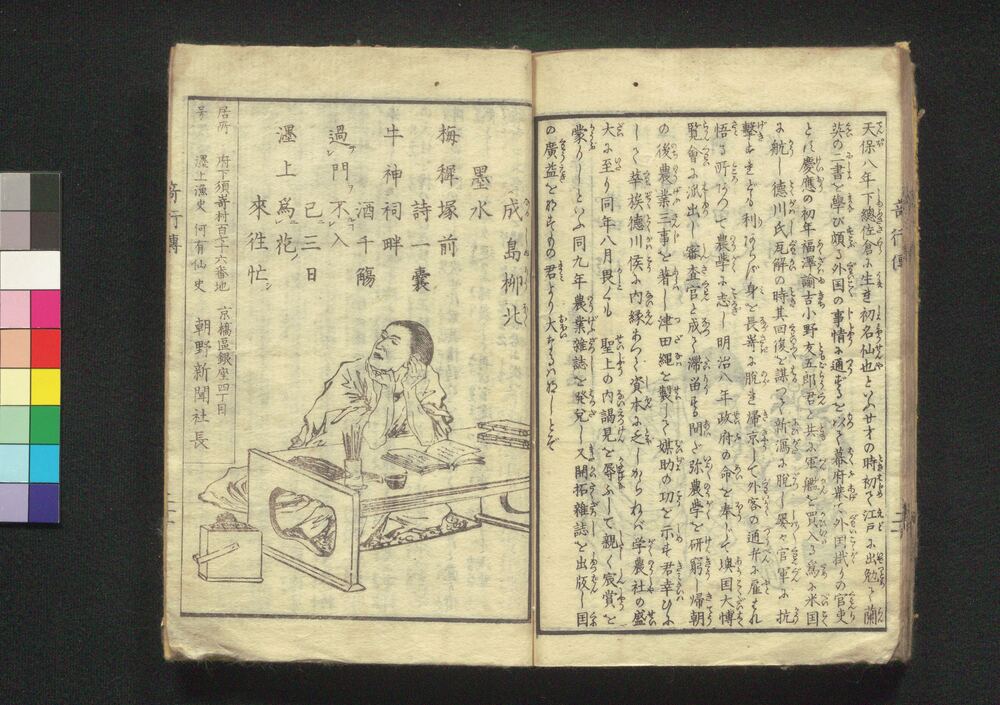 天保八年下總佐倉に生き初名仙也といふ廿才の時初て江戸に出勉て蘭
英の二書を學び頗る外国の事情に通ずるを以て幕府擧て外国掛りの官吏
とす慶應の初年福澤諭吉小野友五郎君と共に軍艦を買入る為に米国
に航し徳川氏瓦解の時其回復を謀つて新潟に脱し屡々官軍に抗
撃すと雖利あらず身を長嵜に脱き帰京して外客の通弁に雇はれ
悟る所あつて農學に志し明治八年政府の命を奉して墺国大博
覧會に派出し審査官と成て滞留する間弥農學を研窮し帰朝
の後農業三事を著し津田縄を製して媒助の功を示す君幸ひに
して華族徳川侯に内縁あつて資本に乏しからねば学農社の盛
大に至り同年八月畏くも聖上の内謁見を辱ふして親く宸賞を
蒙りしといふ同九年農業雑誌を発兌し又開拓雑誌を出版し国
の廣益をなすもの君より大なるはなしとぞ
成島柳北
墨水
梅穉塚前詩一嚢
牛神祠畔酒千觴
過門不入已三日
墨上為花來往忙
居所 府下須嵜村百二十六番地 京橋區銀座四丁目
号 濹上漁史 何有仙史 朝野新聞社長